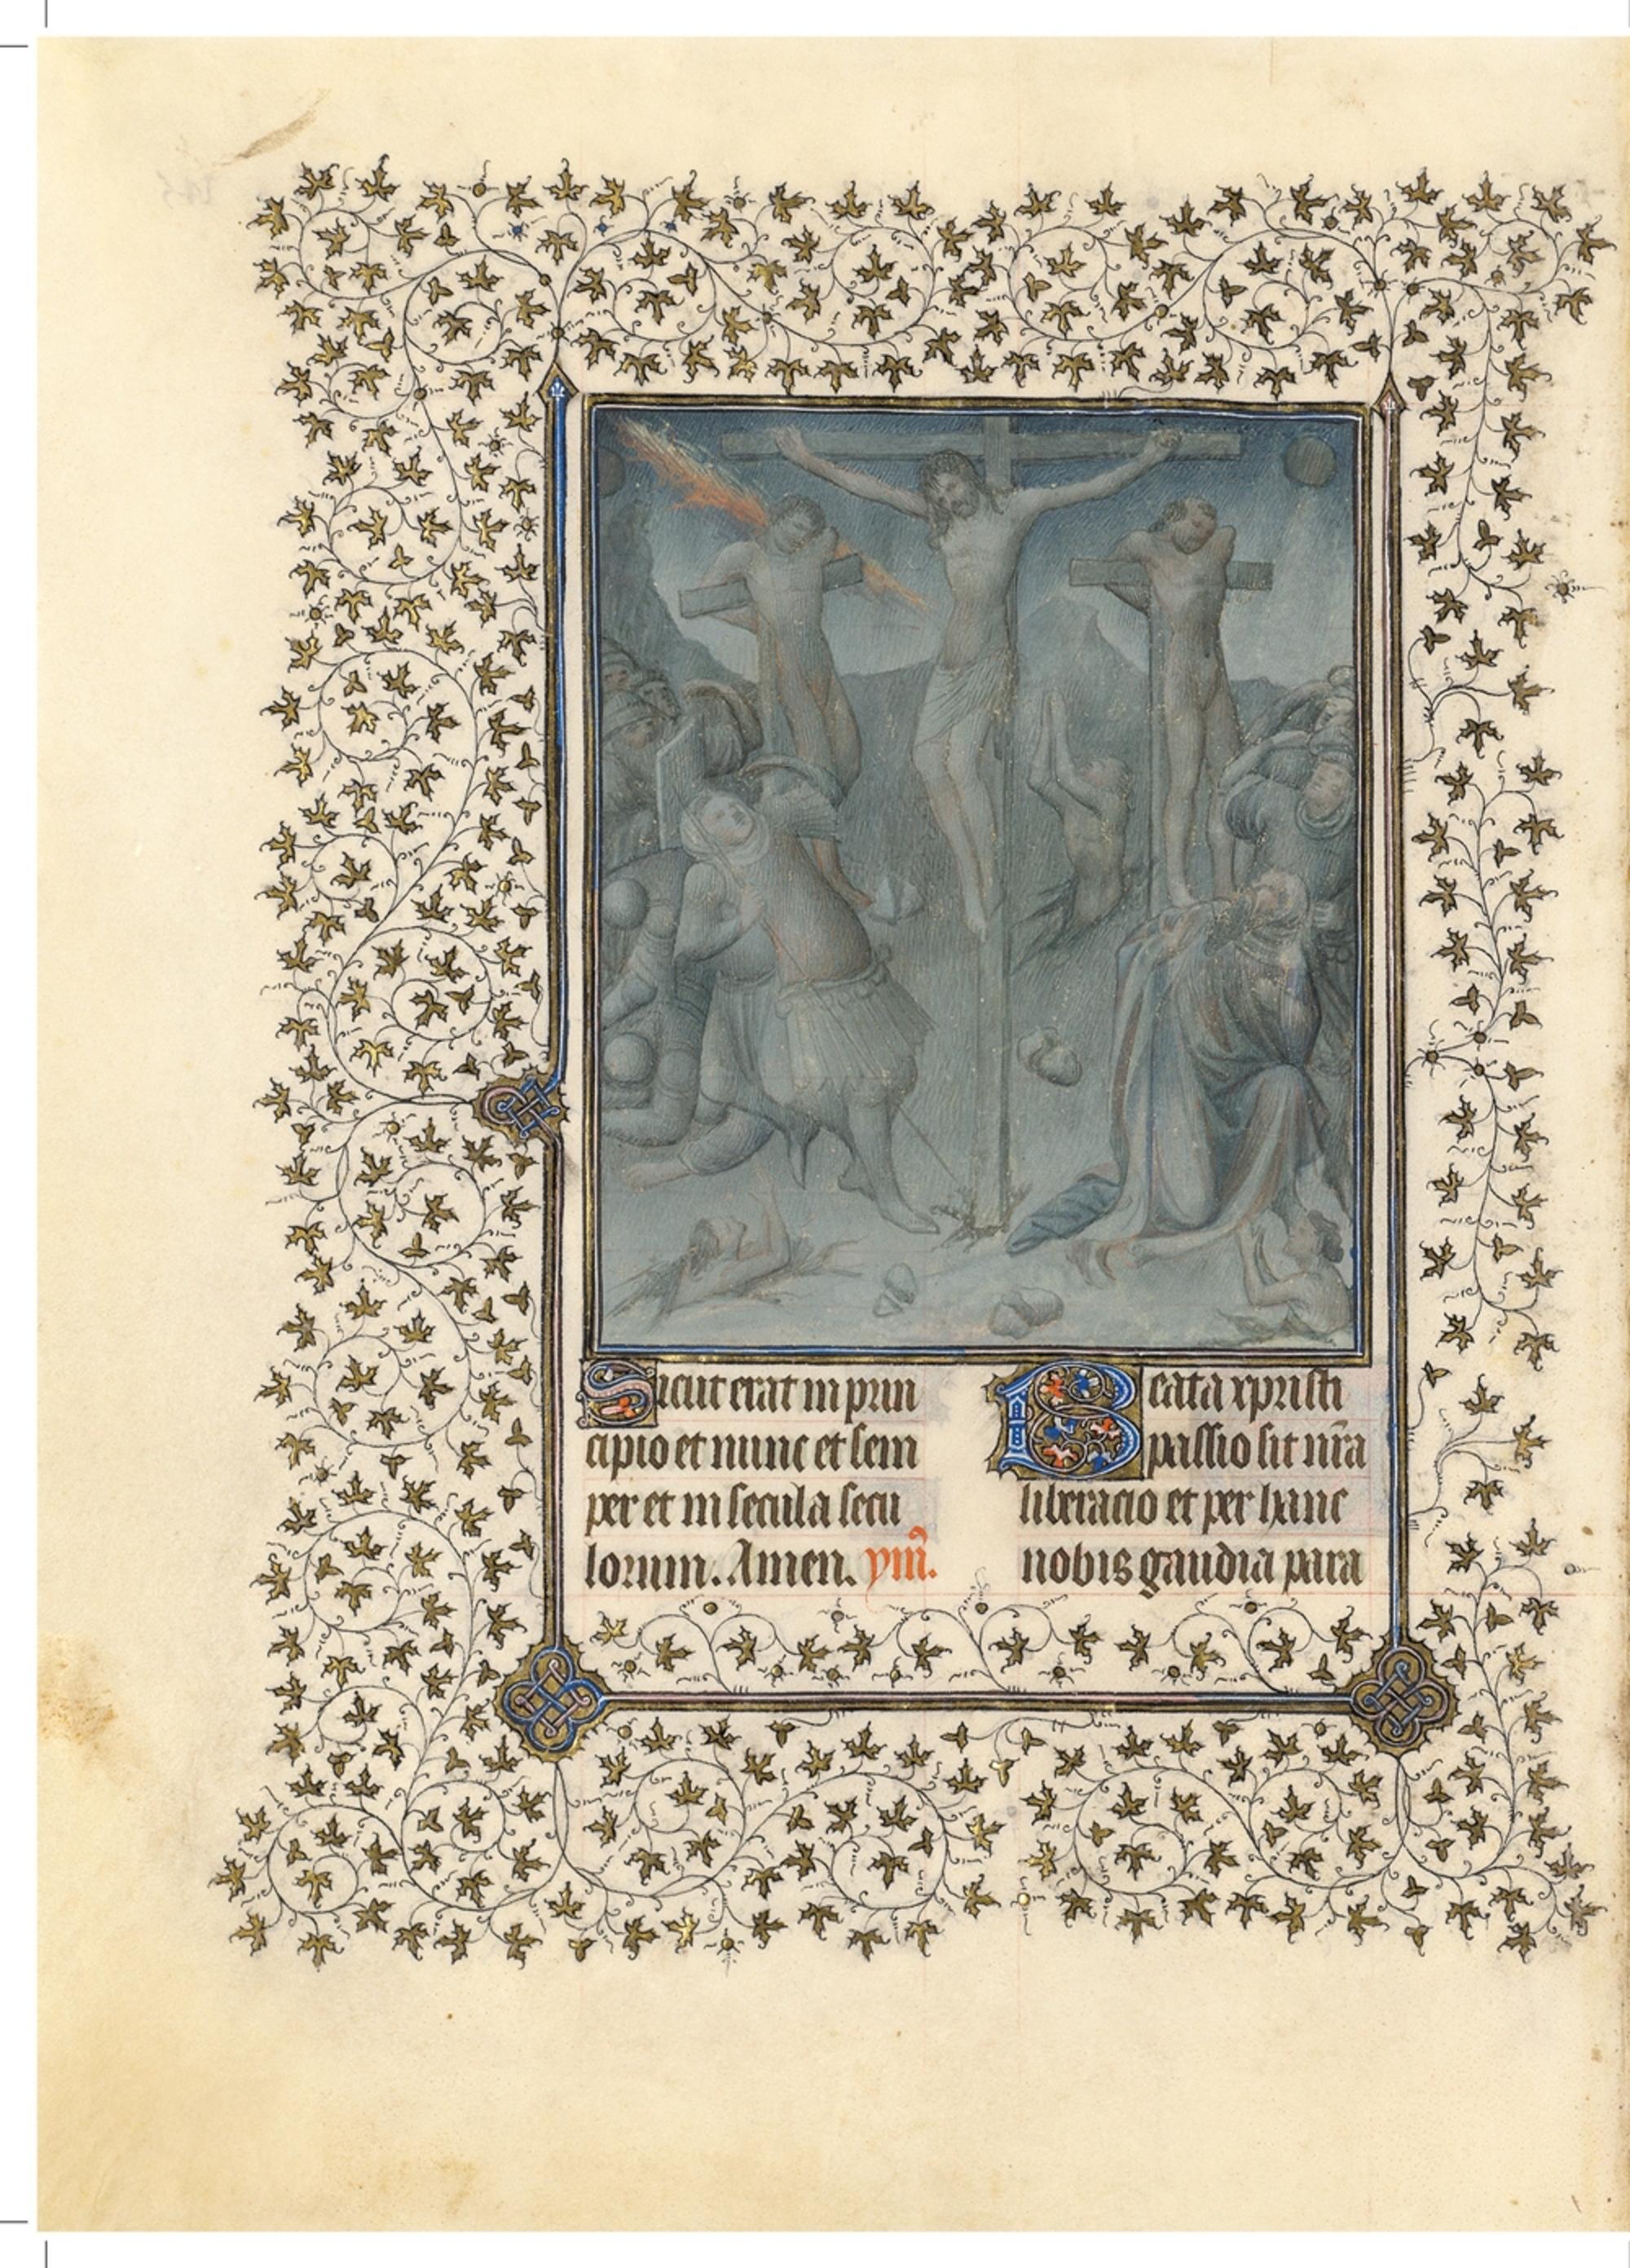 Sicut erat in prin
cipio et nunc et sem
per et in secula secu
lorum. Amen. ym̃.
Beata xpristi
passio sit nr̃a
liberacio et per hanc
nobis gaudia para